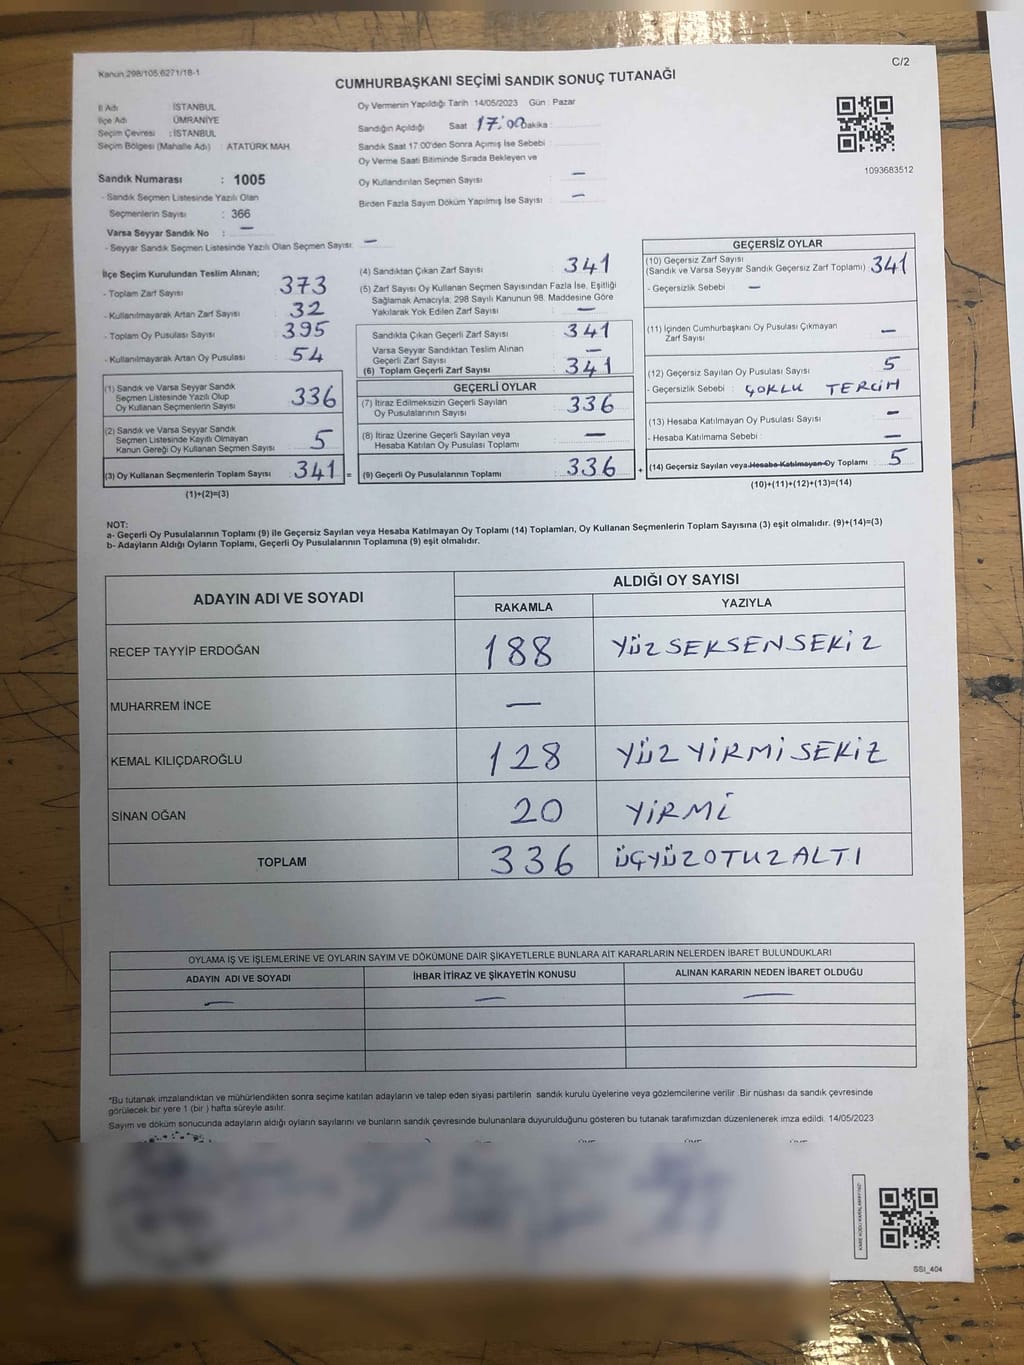 Kanun:298/105;6271/18-1
C/2
CUMHURBAŞKANI SEÇİMİ SANDIK SONUÇ TUTANAĞI
İl Adı : İSTANBUL
İlçe Adı : ÜMRANİYE
Seçim Çevresi : İSTANBUL
Seçim Bölgesi (Mahalle Adı) : ATATÜRK MAH
Sandık Numarası : 1005
- Sandık Seçmen Listesinde Yazılı Olan
Seçmenlerin Sayısı : 366
Varsa Seyyar Sandık No : —
- Seyyar Sandık Seçmen Listesinde Yazılı Olan Seçmen Sayısı: —
Oy Vermenin Yapıldığı Tarih : 14/05/2023 Gün : Pazar
Sandığın Açıldığı Saat 17:00 Dakika :
Sandık Saat 17:00'den Sonra Açımış İse Sebebi :
Oy Verme Saati Bitiminde Sırada Bekleyen ve
Oy Kullandırılan Seçmen Sayısı : —
Birden Fazla Sayım Döküm Yapılmış İse Sayısı : —
1093683512
İlçe Seçim Kurulundan Teslim Alınan;
- Toplam Zarf Sayısı : 373
- Kullanılmayarak Artan Zarf Sayısı : 32
- Toplam Oy Pusulası Sayısı : 395
- Kullanılmayarak Artan Oy Pusulası : 54
(1) Sandık ve Varsa Seyyar Sandık
Seçmen Listesinde Yazılı Olup
Oy Kullanan Seçmenlerin Sayısı : 336
(2) Sandık ve Varsa Seyyar Sandık
Seçmen Listesinde Kayıtlı Olmayan
Kanun Gereği Oy Kullanan Seçmen Sayısı : 5
(3) Oy Kullanan Seçmenlerin Toplam Sayısı : 341 =
(1)+(2)=(3)
(4) Sandıktan Çıkan Zarf Sayısı : 341
(5) Zarf Sayısı Oy Kullanan Seçmen Sayısından Fazla İse, Eşitliği
Sağlamak Amacıyla; 298 Sayılı Kanunun 98. Maddesine Göre
Yakılarak Yok Edilen Zarf Sayısı : —
Sandıkta Çıkan Geçerli Zarf Sayısı : 341
Varsa Seyyar Sandıktan Teslim Alınan
Geçerli Zarf Sayısı : —
(6) Toplam Geçerli Zarf Sayısı : 341
GEÇERLİ OYLAR
(7) İtiraz Edilmeksizin Geçerli Sayılan
Oy Pusulalarının Sayısı : 336
(8) İtiraz Üzerine Geçerli Sayılan veya
Hesaba Katılan Oy Pusulası Toplamı : —
(9) Geçerli Oy Pusulalarının Toplamı : 336 +
GEÇERSİZ OYLAR
(10) Geçersiz Zarf Sayısı
(Sandık ve Varsa Seyyar Sandık Geçersiz Zarf Toplamı) : 341
- Geçersizlik Sebebi : —
(11) İçinden Cumhurbaşkanı Oy Pusulası Çıkmayan
Zarf Sayısı : —
(12) Geçersiz Sayılan Oy Pusulası Sayısı : 5
- Geçersizlik Sebebi : ÇOKLU TERCİH
(13) Hesaba Katılmayan Oy Pusulası Sayısı : —
- Hesaba Katılmama Sebebi : —
(14) Geçersiz Sayılan veya Hesaba Katılmayan Oy Toplamı : 5
(10)+(11)+(12)+(13)=(14)
NOT:
a- Geçerli Oy Pusulalarının Toplamı (9) ile Geçersiz Sayılan veya Hesaba Katılmayan Oy Toplamı (14) Toplamları, Oy Kullanan Seçmenlerin Toplam Sayısına (3) eşit olmalıdır. (9)+(14)=(3)
b- Adayların Aldığı Oyların Toplamı, Geçerli Oy Pusulalarının Toplamına (9) eşit olmalıdır.
ADAYIN ADI VE SOYADI
ALDIĞI OY SAYISI
RAKAMLA YAZIYLA
RECEP TAYYİP ERDOĞAN 188 YÜZ SEKSEN SEKİZ
MUHARREM İNCE —
KEMAL KILIÇDAROĞLU 128 YÜZ YİRMİ SEKİZ
SİNAN OĞAN 20 YİRMİ
TOPLAM 336 ÜÇYÜZ OTUZ ALTI
OYLAMA İŞ VE İŞLEMLERİNE VE OYLARIN SAYIM VE DÖKÜMÜNE DAİR ŞİKAYETLERLE BUNLARA AİT KARARLARIN NELERDEN İBARET BULUNDUKLARI
ADAYIN ADI VE SOYADI İHBAR İTİRAZ VE ŞİKAYETİN KONUSU ALINAN KARARIN NEDEN İBARET OLDUĞU
— — —
*Bu tutanak imzalandıktan ve mühürlendikten sonra seçime katılan adayların ve talep eden siyasi partilerin sandık kurulu üyelerine veya gözlemcilerine verilir .Bir nüshası da sandık çevresinde
görülecek bir yere 1 (bir ) hafta süreyle asılır.
Sayım ve döküm sonucunda adayların aldığı oyların sayılarını ve bunların sandık çevresinde bulunanlara duyurulduğunu gösteren bu tutanak tarafımızdan düzenlenerek imza edildi. 14/05/2023
SSI_404